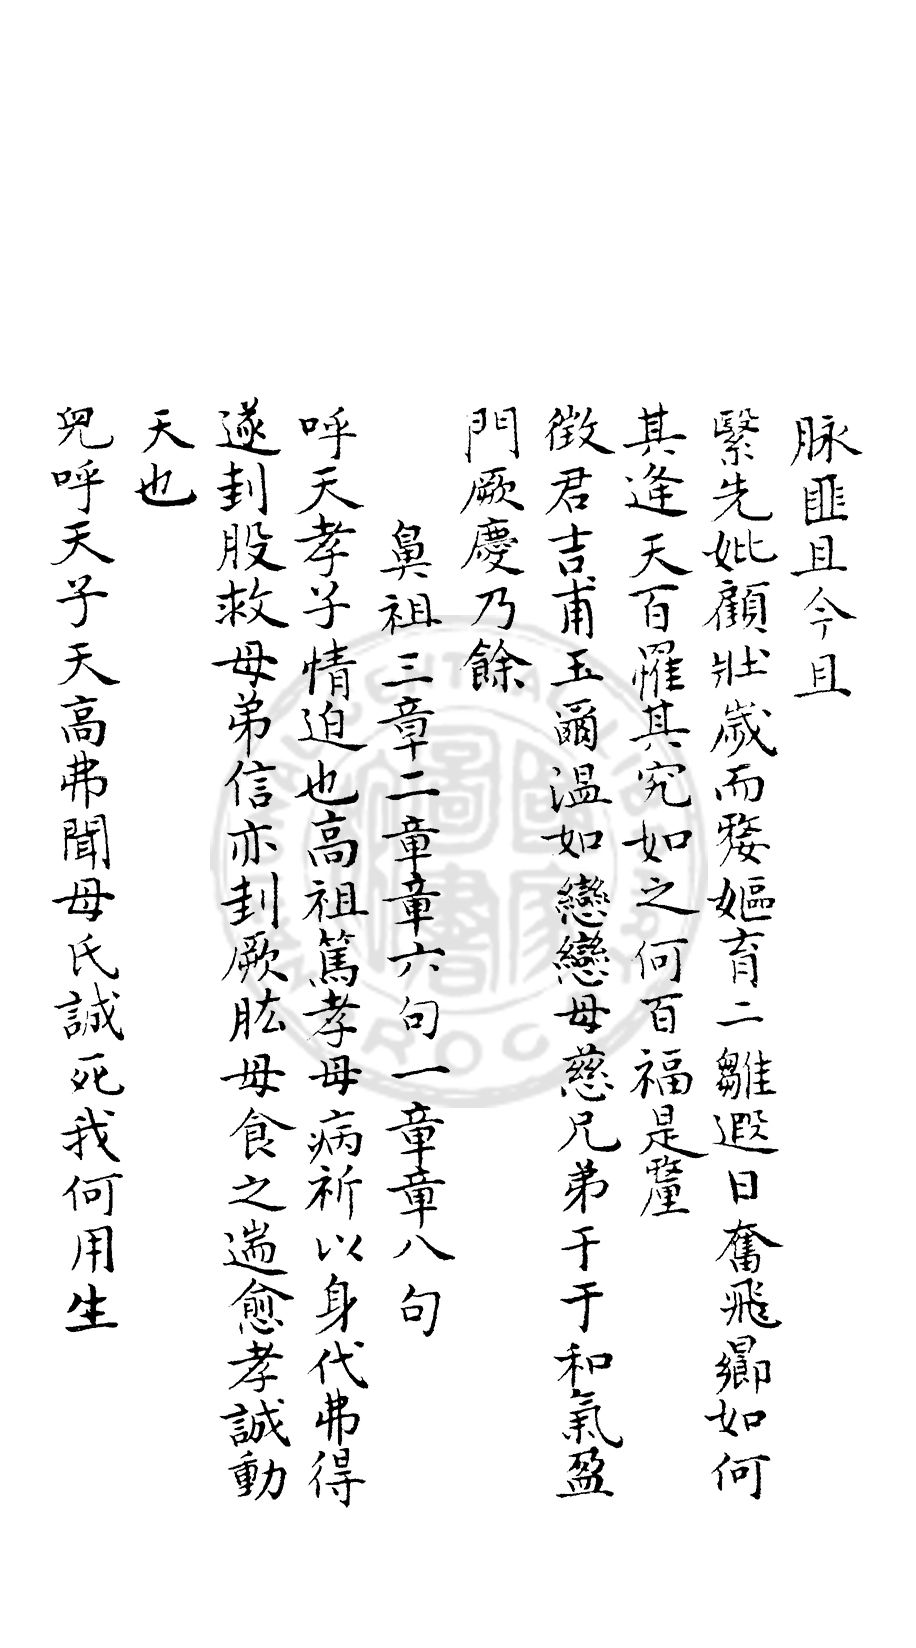 脉匪且今且
緊先妣顧壯歲而嫠嫗育二雛遐日奮飛鄉如何
其逢天百罹其究如之何百福是釐
徵君吉甫玉爾溫如戀戀母慈兄弟于于和氣盈
門厥慶乃餘
鼻祖三章二章章六句一章章八句
呼天孝子情迫也高祖篤孝母病祈以身代弗得
遂刲股救母弟信亦刲厥肱母食之遄愈孝誠動
天也
兒呼天子天高弗聞母氏誠死我何用生